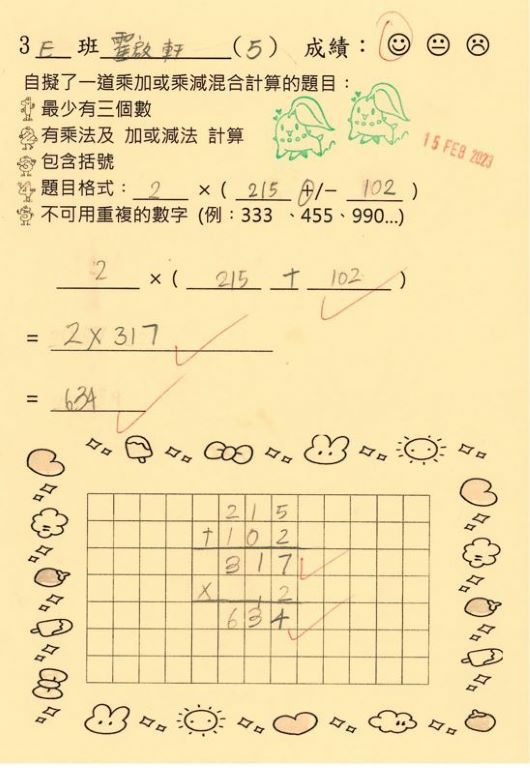 3 E 班 霍啟軒 (5) 成績：
自擬了一道乘加或乘減混合計算的題目：
最少有三個數
有乘法及 加或減法 計算
15 FEB 2023
包含括號
題目格式： 2 × ( 215 +/− 102 )
不可用重複的數字 (例：333 、455、990...)
2 × ( 215 + 102 )
= 2×317
= 634
215
+102
317
× 2
634